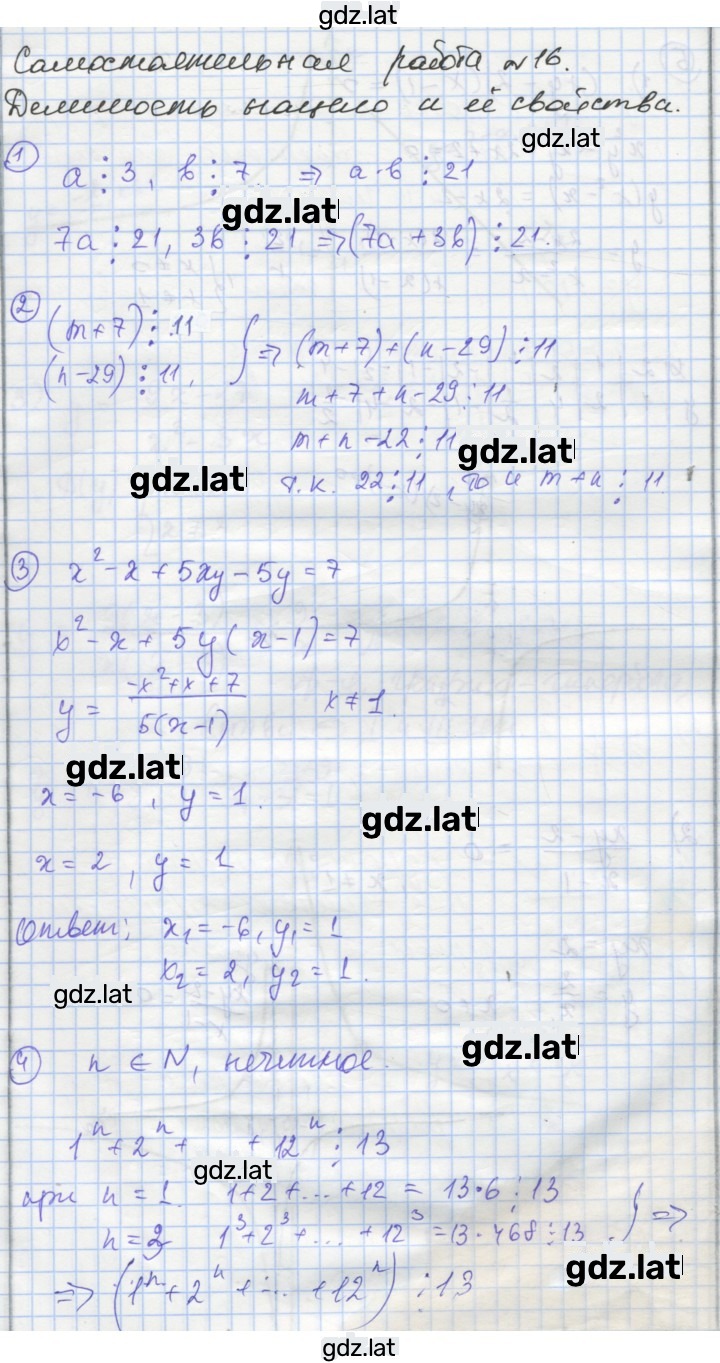 gdz.lat
Самостоятельная работа №16.
Делимость нацело и её свойства.
gdz.lat
① a⋮3, b⋮7 ⇒ a·b⋮21
gdz.lat
7a⋮21, 3b⋮21 ⇒ (7a+3b)⋮21.
② (m+7)⋮11
(n-29)⋮11, } ⇒ (m+7)+(n-29)⋮11
m+7+n-29⋮11
m+n-22⋮11
gdz.lat gdz.lat
т.к. 22⋮11, то и m+n⋮11
③ x²-x+5xy-5y=7
x²-x+5y(x-1)=7
y = (-x²+x+7)/(5(x-1)) x≠1.
gdz.lat
x=-6, y=1.
gdz.lat
x=2, y=1
Ответ: x₁=-6, y₁=1
x₂=2, y₂=1.
gdz.lat
④ n∈N, нечётное.
gdz.lat
1ⁿ+2ⁿ+ +12ⁿ⋮13
gdz.lat
при n=1. 1+2+...+12=13·6⋮13
n=3 1³+2³+...+12³=13·468⋮13. } ⇒
gdz.lat
⇒ (1ⁿ+2ⁿ+...+12ⁿ)⋮13
gdz.lat